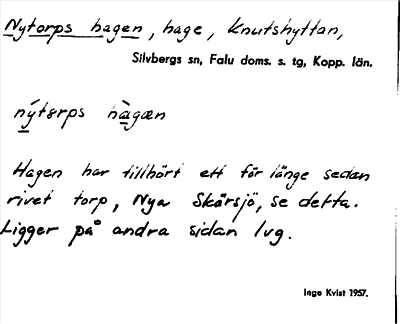 Nytorps hagen, hage, Knutshyttan,
Silvbergs sn, Falu doms. s. tg, Kopp. län.
nýtɷrps hàgæn
Hagen har tillhört ett för länge sedan
rivet torp, Nya Skärsjö, se detta.
Ligger på andra sidan lvg.
Inge Kvist 1957.